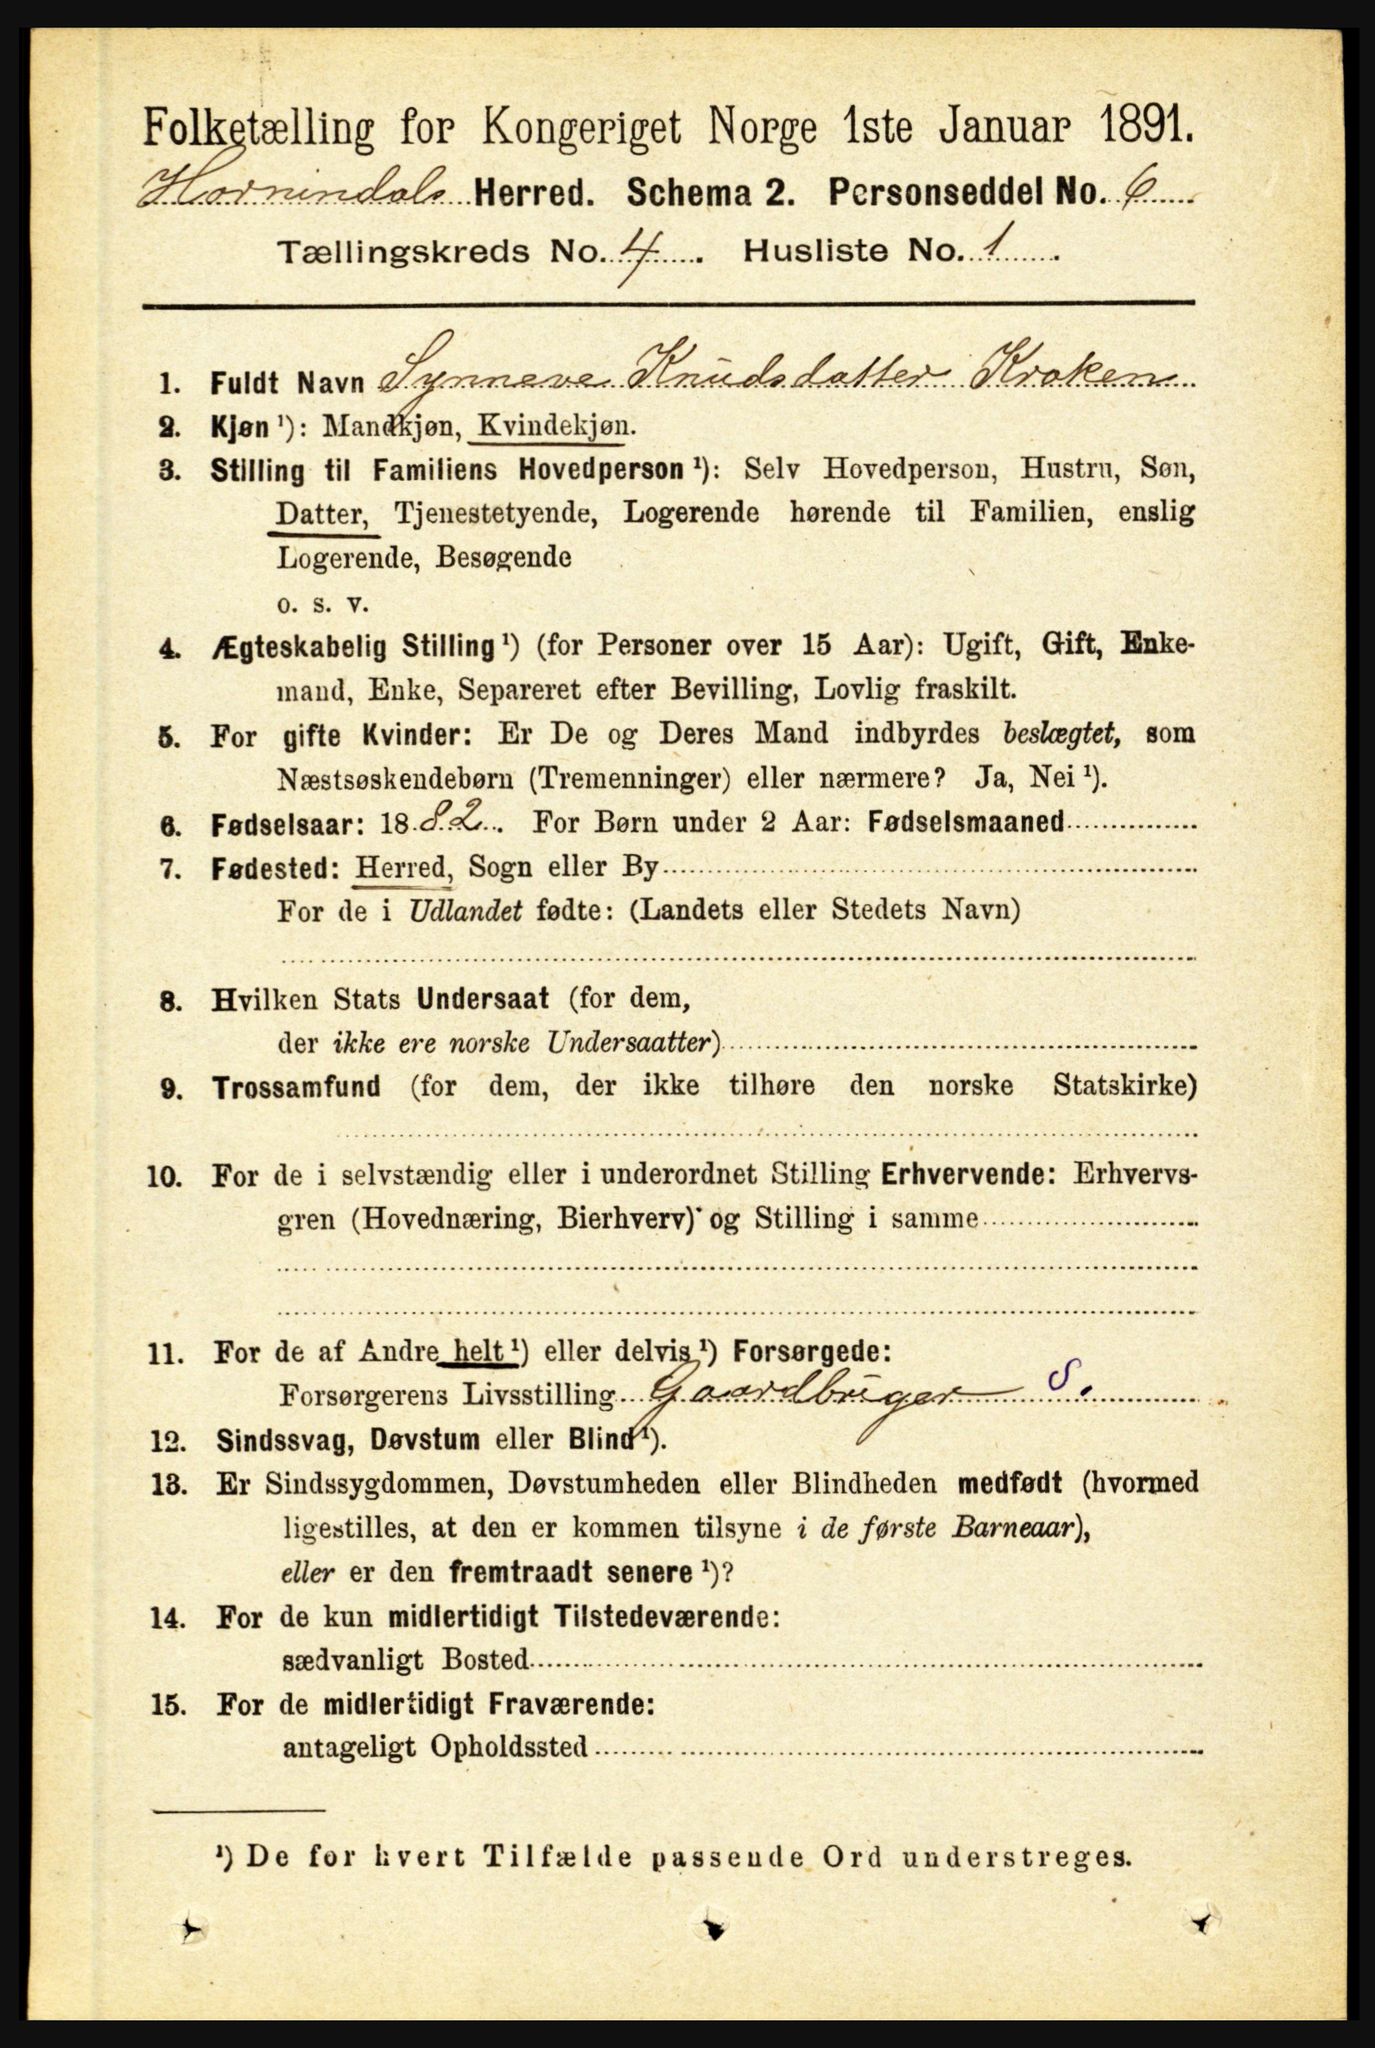 Folketælling for Kongeriget Norge 1ste Januar 1891.
Hornindals Herred. Schema 2. Personseddel No. 6
Tællingskreds No. 4. Husliste No. 1.
1. Fuldt Navn Synneve Knudsdatter Kroken
2. Kjøn ¹): Mandkjøn, Kvindekjøn.
3. Stilling til Familiens Hovedperson ¹): Selv Hovedperson, Hustru, Søn,
Datter, Tjenestetyende, Logerende hørende til Familien, enslig
Logerende, Besøgende
o. s. v.
4. Ægteskabelig Stilling ¹) (for Personer over 15 Aar): Ugift, Gift, Enke-
mand, Enke, Separeret efter Bevilling, Lovlig fraskilt.
5. For gifte Kvinder: Er De og Deres Mand indbyrdes beslægtet, som
Næstsøskendebørn (Tremenninger) eller nærmere? Ja, Nei ¹).
6. Fødselsaar: 1882. For Børn under 2 Aar: Fødselsmaaned
7. Fødested: Herred, Sogn eller By
For de i Udlandet fødte: (Landets eller Stedets Navn)
8. Hvilken Stats Undersaat (for dem,
der ikke ere norske Undersaatter)
9. Trossamfund (for dem, der ikke tilhøre den norske Statskirke)
10. For de i selvstændig eller i underordnet Stilling Erhvervende: Erhvervs-
gren (Hovednæring, Bierhverv) og Stilling i samme
11. For de af Andre helt ¹) eller delvis ¹) Forsørgede:
Forsørgerens Livsstilling Gaardbruger S.
12. Sindssvag, Døvstum eller Blind ¹).
13. Er Sindssygdommen, Døvstumheden eller Blindheden medfødt (hvormed
ligestilles, at den er kommen tilsyne i de første Barneaar),
eller er den fremtraadt senere ¹)?
14. For de kun midlertidigt Tilstedeværende:
sædvanligt Bosted
15. For de midlertidigt Fraværende:
antageligt Opholdssted
¹) De for hvert Tilfælde passende Ord understreges.